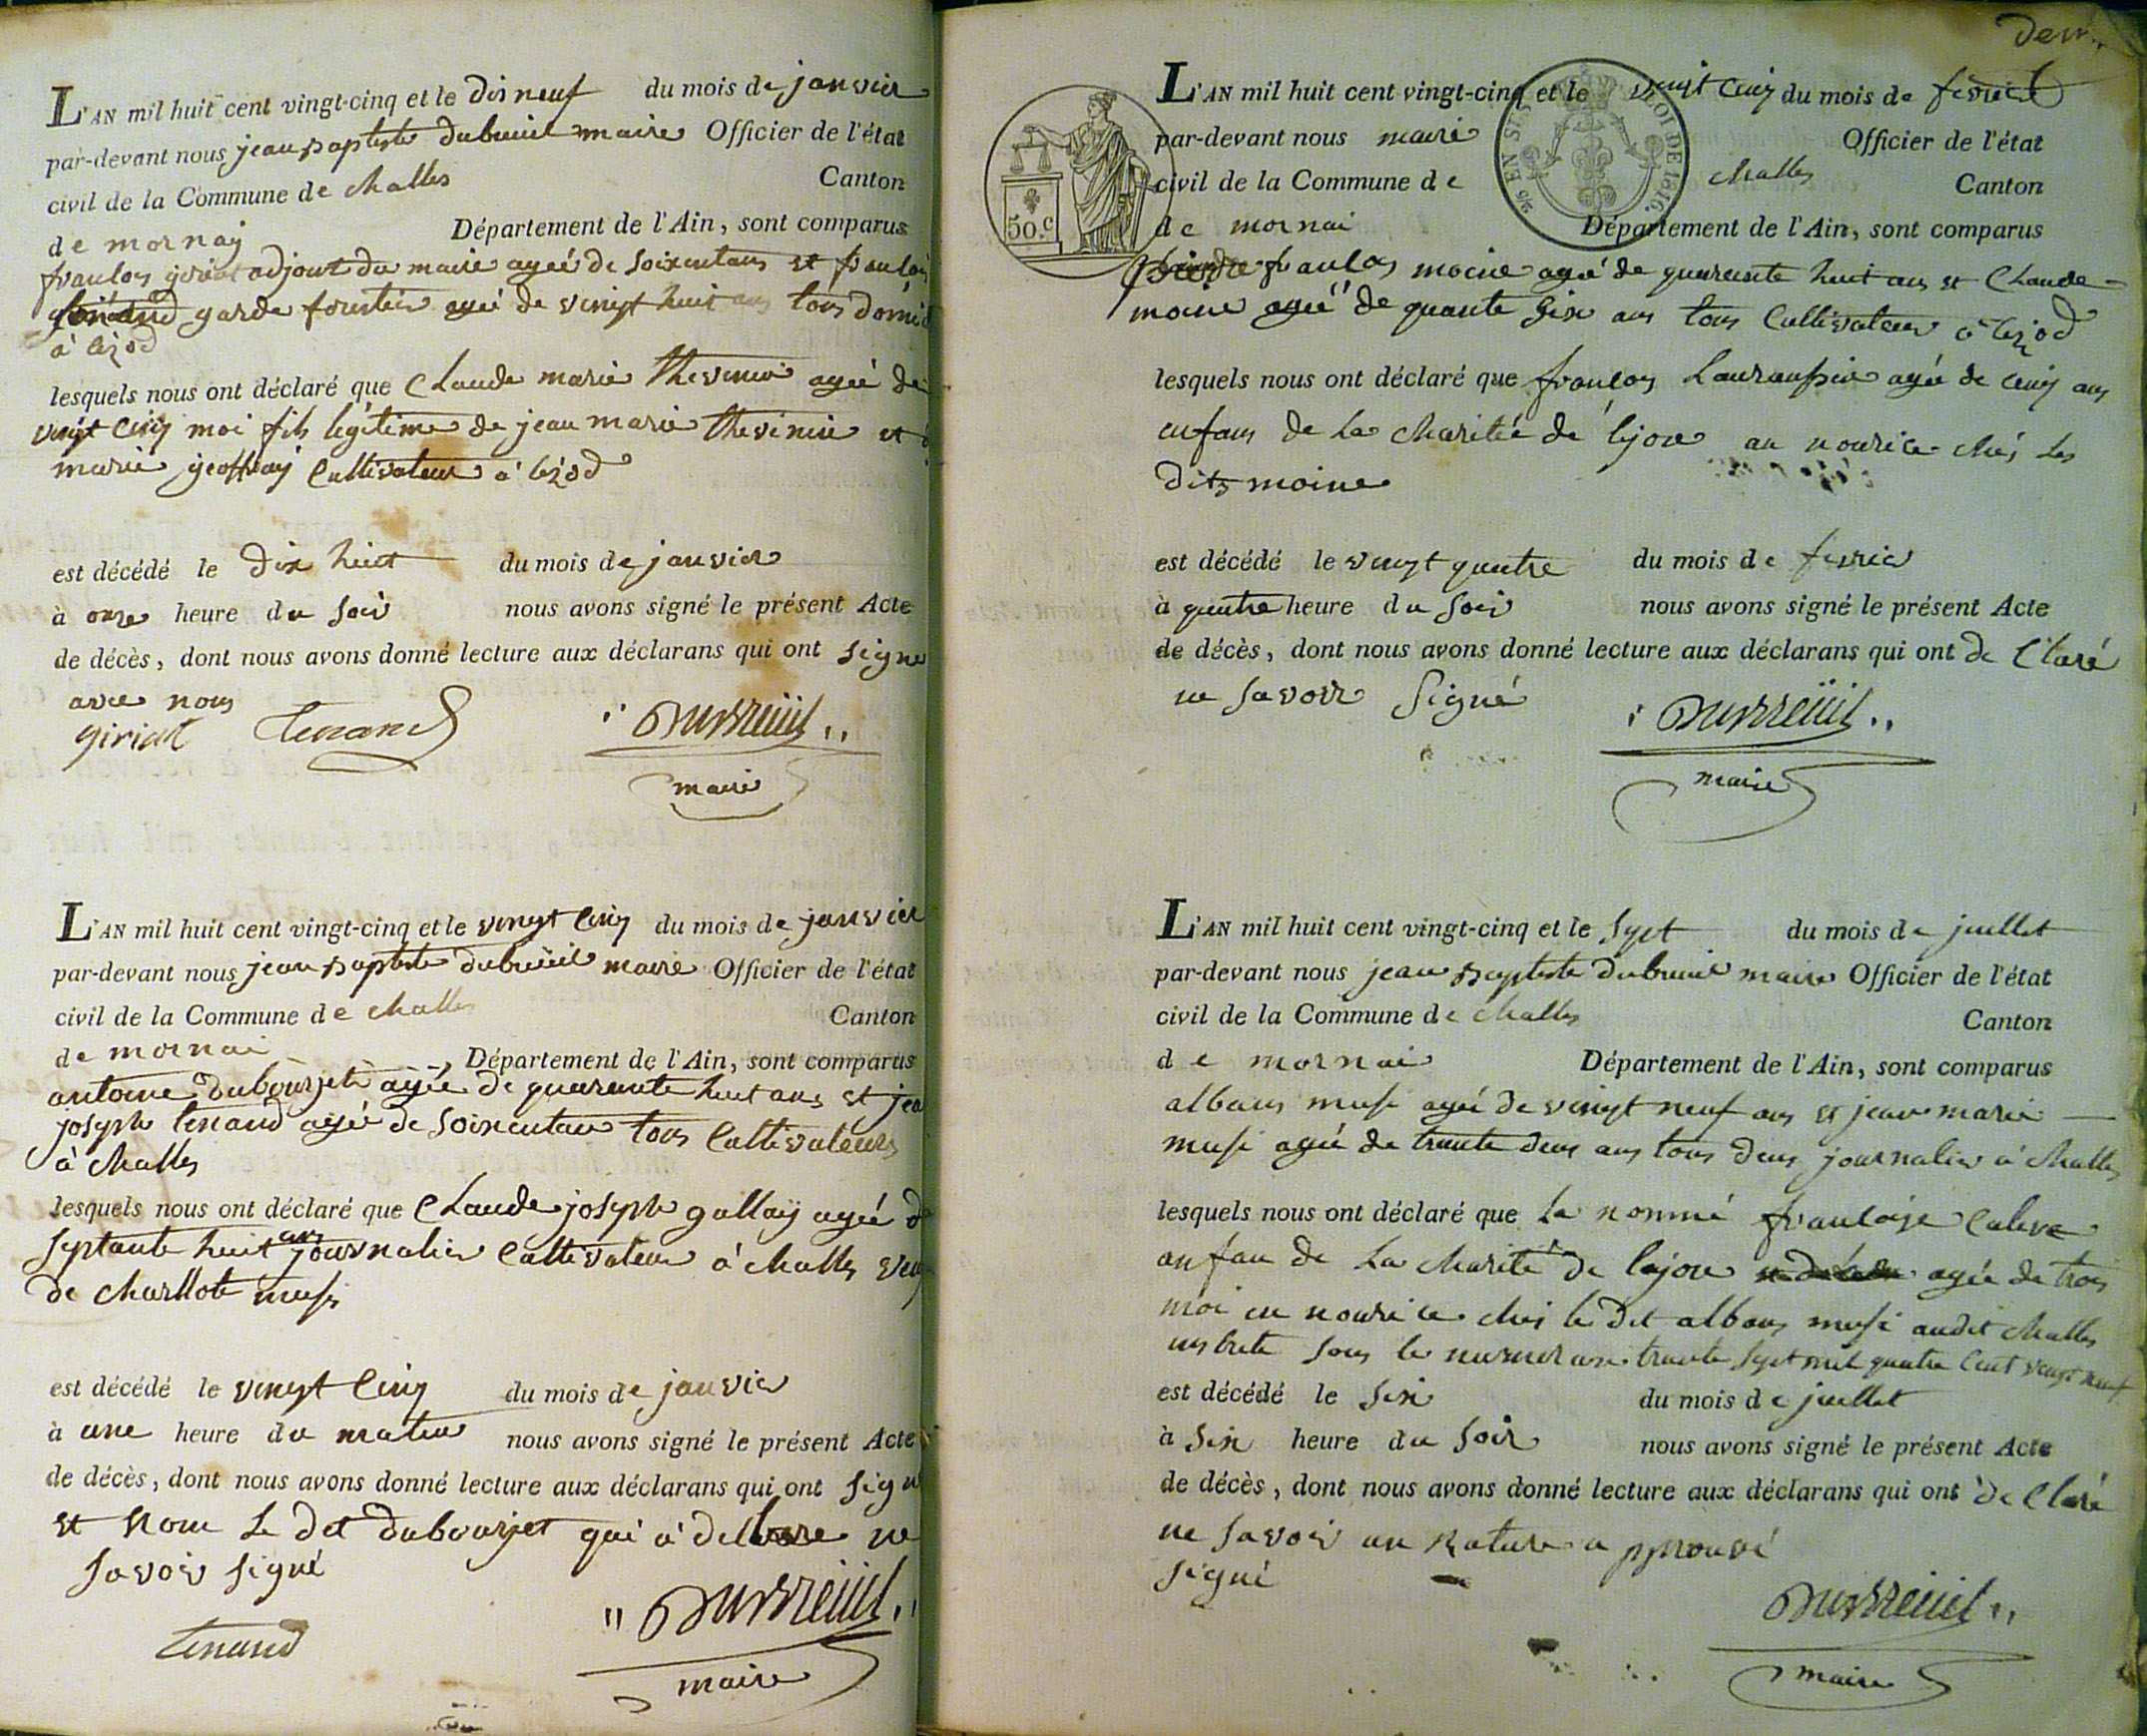 L'AN mil huit cent vingt-cinq et le dis neuf du mois de janvier
par-devant nous jean baptiste dubreuil maire Officier de l'état
civil de la Commune de challes Canton
de mornay Département de l'Ain, sont comparus
françois giriat adjout du maire ageé de soixentans et françois
garde forestier ageé de vingt huit ans tous domic
à lézod
lesquels nous ont déclaré que Claude marie thevenin ageé de
vingt cinq moi fils légitime de jean marie thevenin et d
marie geoffray Cultivateur à lézod
est décédé le dix huit du mois de janvier
à onze heure du soir nous avons signé le présent Acte
de décès, dont nous avons donné lecture aux déclarans qui ont signe
avec nous
giriat tenand Dubreüil
maire
L'AN mil huit cent vingt-cinq et le vingt cinq du mois de janvier
par-devant nous jean baptiste dubreüil maire Officier de l'état
civil de la Commune de challes Canton
de mornai Département de l'Ain, sont comparus
antoine dubourjet ageé de quarante huit ans et jea
joseph tenand ageé de soixentans tous Cultivateurs
à challes
lesquels nous ont déclaré que Claude joseph gallay ageé d
septante huit ans journalier Cultivateur à challes veuf
de charllote musi
est décédé le vingt Cinq du mois de janvier
à une heure du matin nous avons signé le présent Acte
de décès, dont nous avons donné lecture aux déclarans qui ont signe
et nom le dit dubourjet qui à déllare ne
savoir signé
tenand Dubreüil
maire
deux
50.c
EN SUS LOI DE 1816.
L'AN mil huit cent vingt-cinq et le vingt cinq du mois de fevrier
par-devant nous maire Officier de l'état
civil de la Commune de challes Canton
de mornai Département de l'Ain, sont comparus
françois moine agé de quarente huit ans et Claude
moine ageé de quante six ans tous Cultivateur à lézod
lesquels nous ont déclaré que françois agée de cinq ans
enfans de la charitée de lyon an nourice chés les
dits moine
est décédé le vingt quatre du mois de fevrier
à quatre heure du soir nous avons signé le présent Acte
de décès, dont nous avons donné lecture aux déclarans qui ont de Claré
ne savoir signé
Dubreüil
maire
L'AN mil huit cent vingt-cinq et le sept du mois de juillet
par-devant nous jean baptiste dubreuil maire Officier de l'état
civil de la Commune de challes Canton
de mornai Département de l'Ain, sont comparus
albans musi ageé de vingt neuf ans et jean marie
musi ageé de trante deux ans tous deux journalier à challes
lesquels nous ont déclaré que la nommé françoise
anfan de la charité de lyon agée de trois
moi en nourice chés le dit albans musi audit challes
sous le numeraux trante sept mil quatre cent vingt neuf
est décédé le six du mois de juillet
à six heure du soir nous avons signé le présent Acte
de décès, dont nous avons donné lecture aux déclarans qui ont de Claré
ne savoir un rature approuvé
signé
Dubreüil
maire